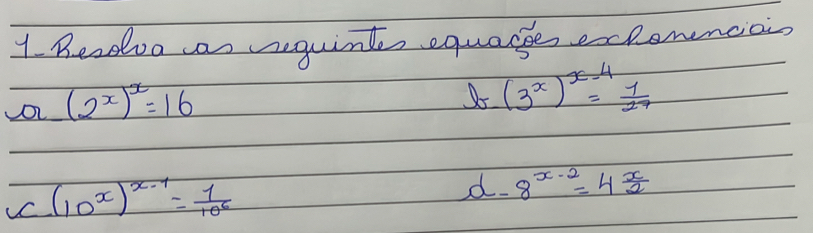 1- Resolva as seguintes equações exponenciais
a- (2^x)^x = 16 b- (3^x)^{x-4} = 1/27
c- (10^x)^{x-1} = 1/10^6 d- 8^{x-2} = 4^{x/2}